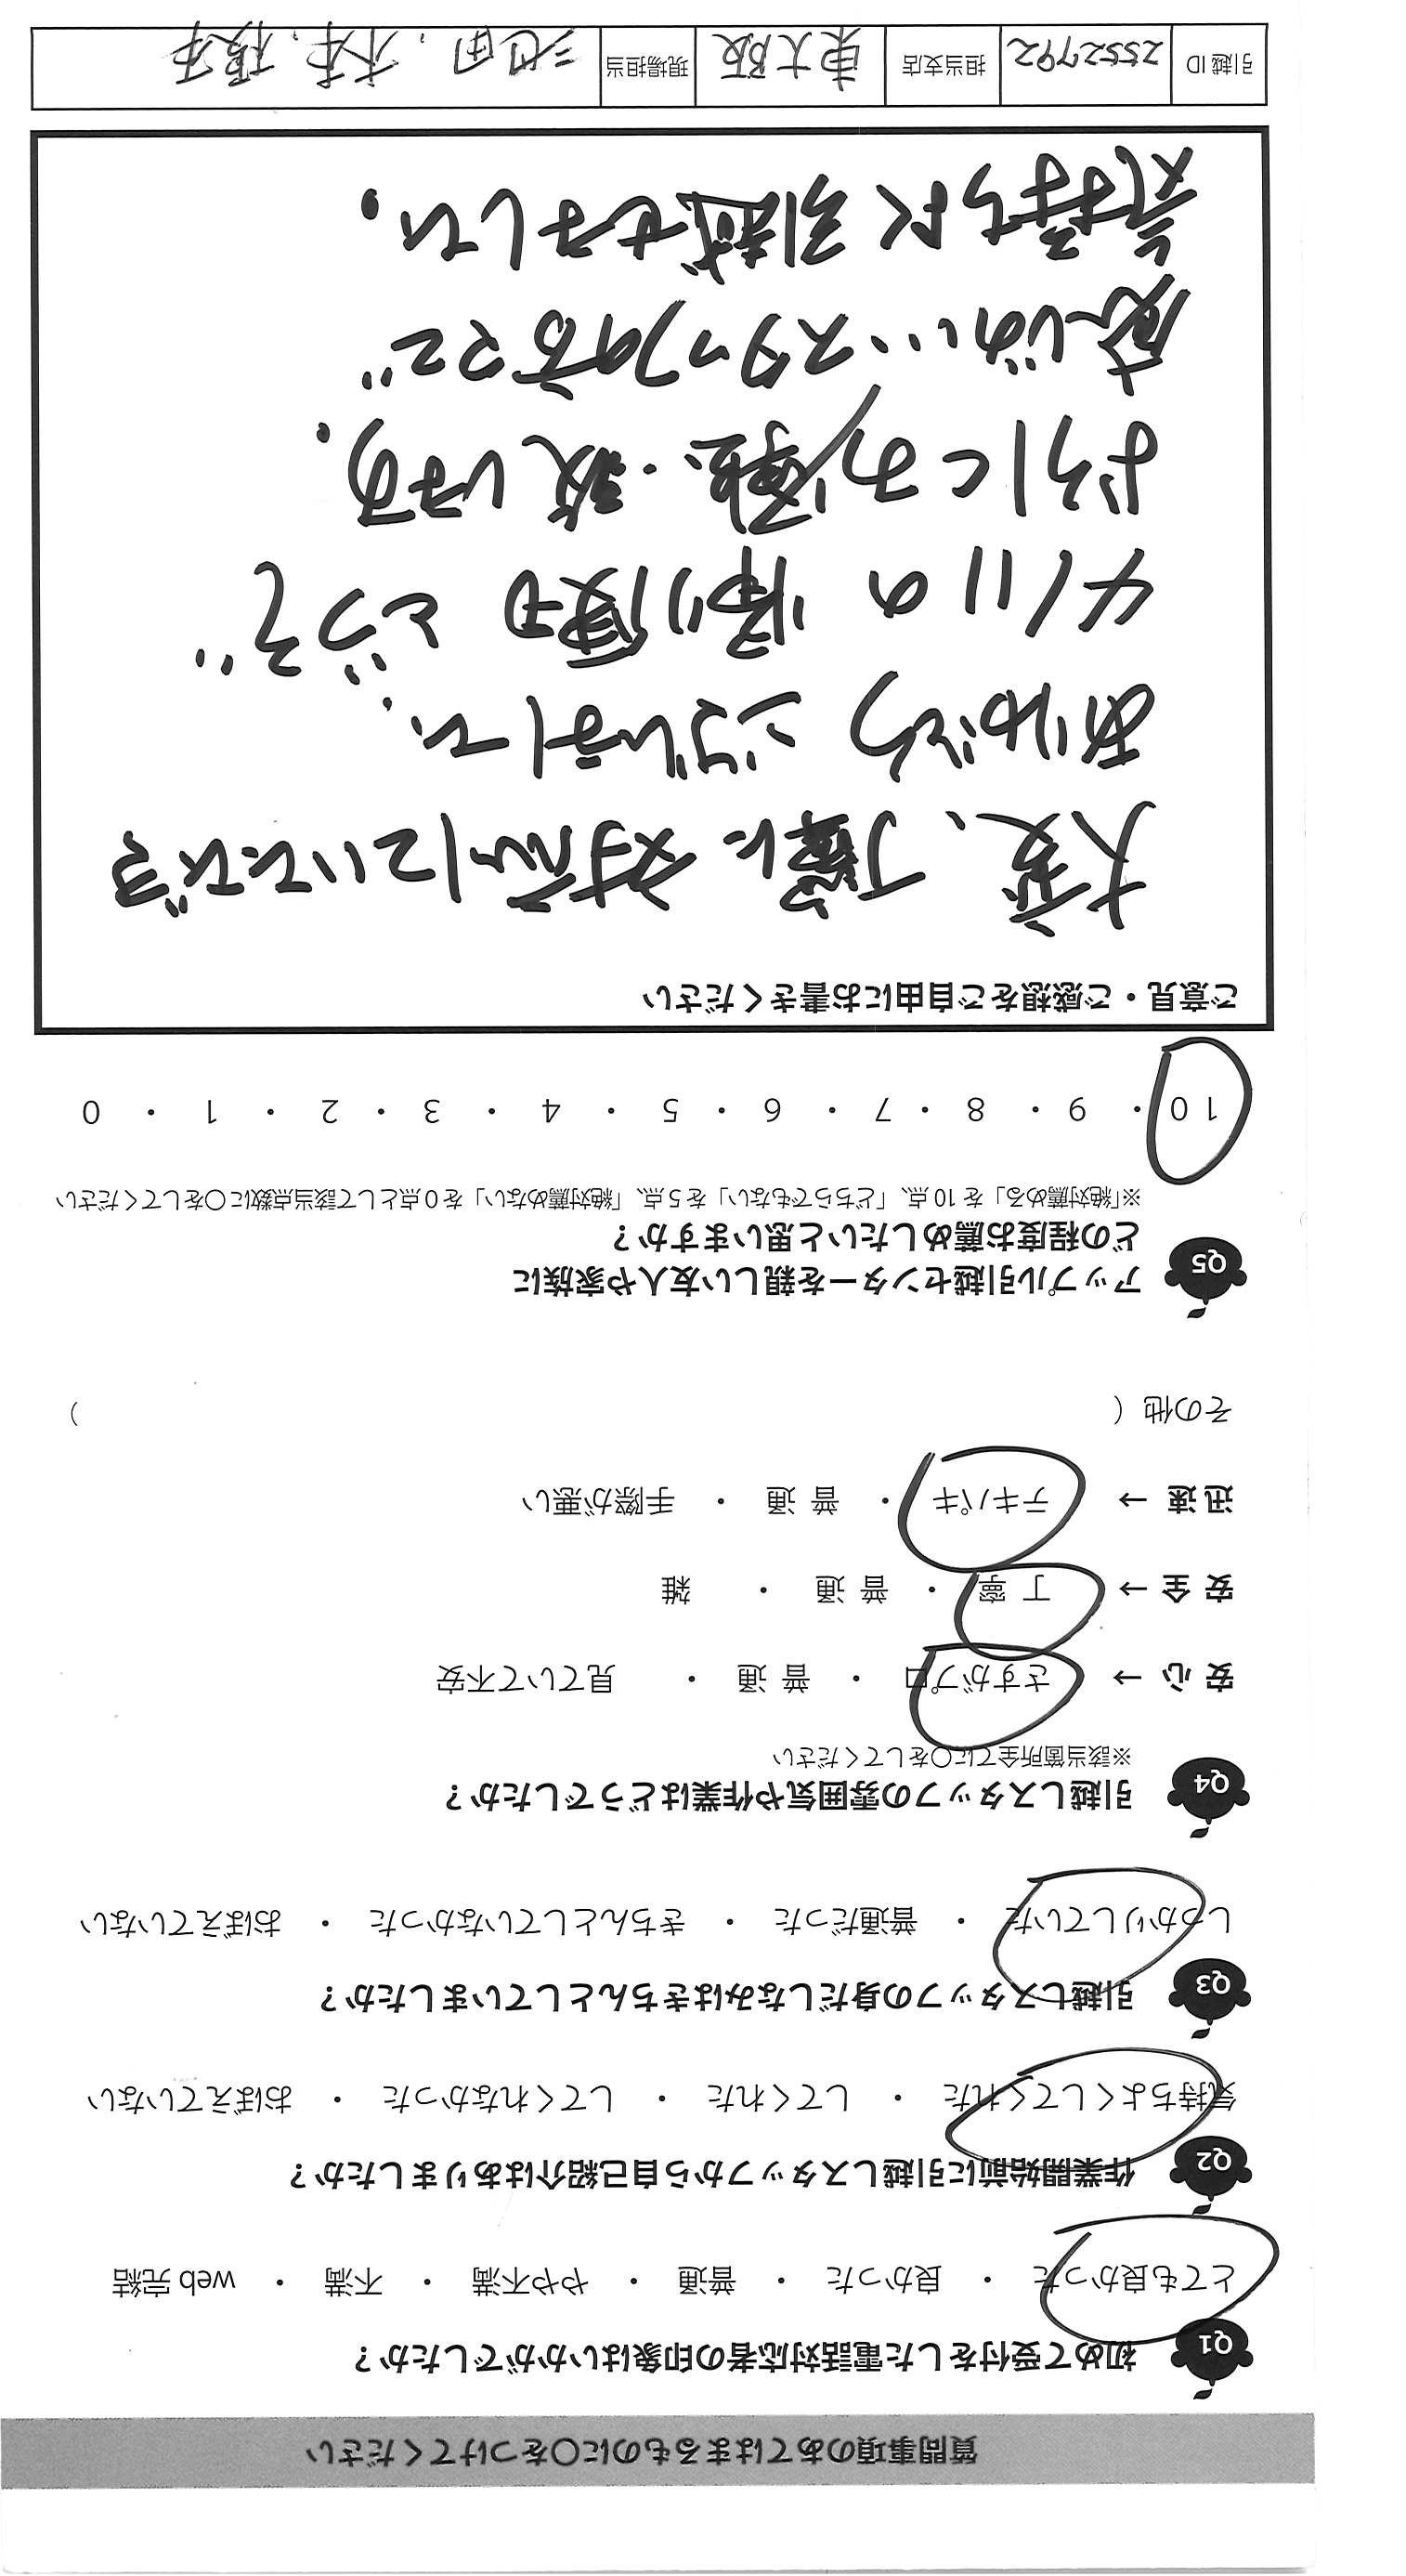 質問事項のあてはまるものに〇をつけてください
Q1 初めて受付をした電話対応者の印象はいかがでしたか？
とても良かった ・ 良かった ・ 普通 ・ やや不満 ・ 不満 ・ web 完結
Q2 作業開始前に引越しスタッフから自己紹介はありましたか？
気持ちよくしてくれた ・ してくれた ・ してくれなかった ・ おぼえていない
Q3 引越しスタッフの身だしなみはきちんとしていましたか？
しっかりしていた ・ 普通だった ・ きちんとしていなかった ・ おぼえていない
Q4 引越しスタッフの雰囲気や作業はどうでしたか？
※該当箇所全てに〇をしてください
安 心 → さすがプロ ・ 普 通 ・ 見ていて不安
安 全 → 丁 寧 ・ 普 通 ・ 雑
迅 速 → テキパキ ・ 普 通 ・ 手際が悪い
その他（ ）
Q5 アップル引越センターを親しい友人や家族に
どの程度お薦めしたいと思いますか？
※「絶対薦める」を 10 点、「どちらでもない」を 5 点、「絶対薦めない」を 0 点として該当点数に〇をしてください
10 ・ 9 ・ 8 ・ 7 ・ 6 ・ 5 ・ 4 ・ 3 ・ 2 ・ 1 ・ 0
ご意見・ご感想をご自由にお書きください
大変、丁寧に対応
ありがとうございました。
の帰り便もどうぞ
よろしくお願い致します。
感じのいいスタッフの方々で
気持ちよく引越せました。
引越 ID 2552792 担当支店 東大阪 現場担当 池田,